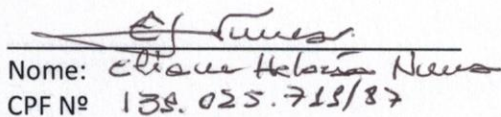 Nome: Eliane Heloisa Nunes
CPF Nº 139.025.719/87